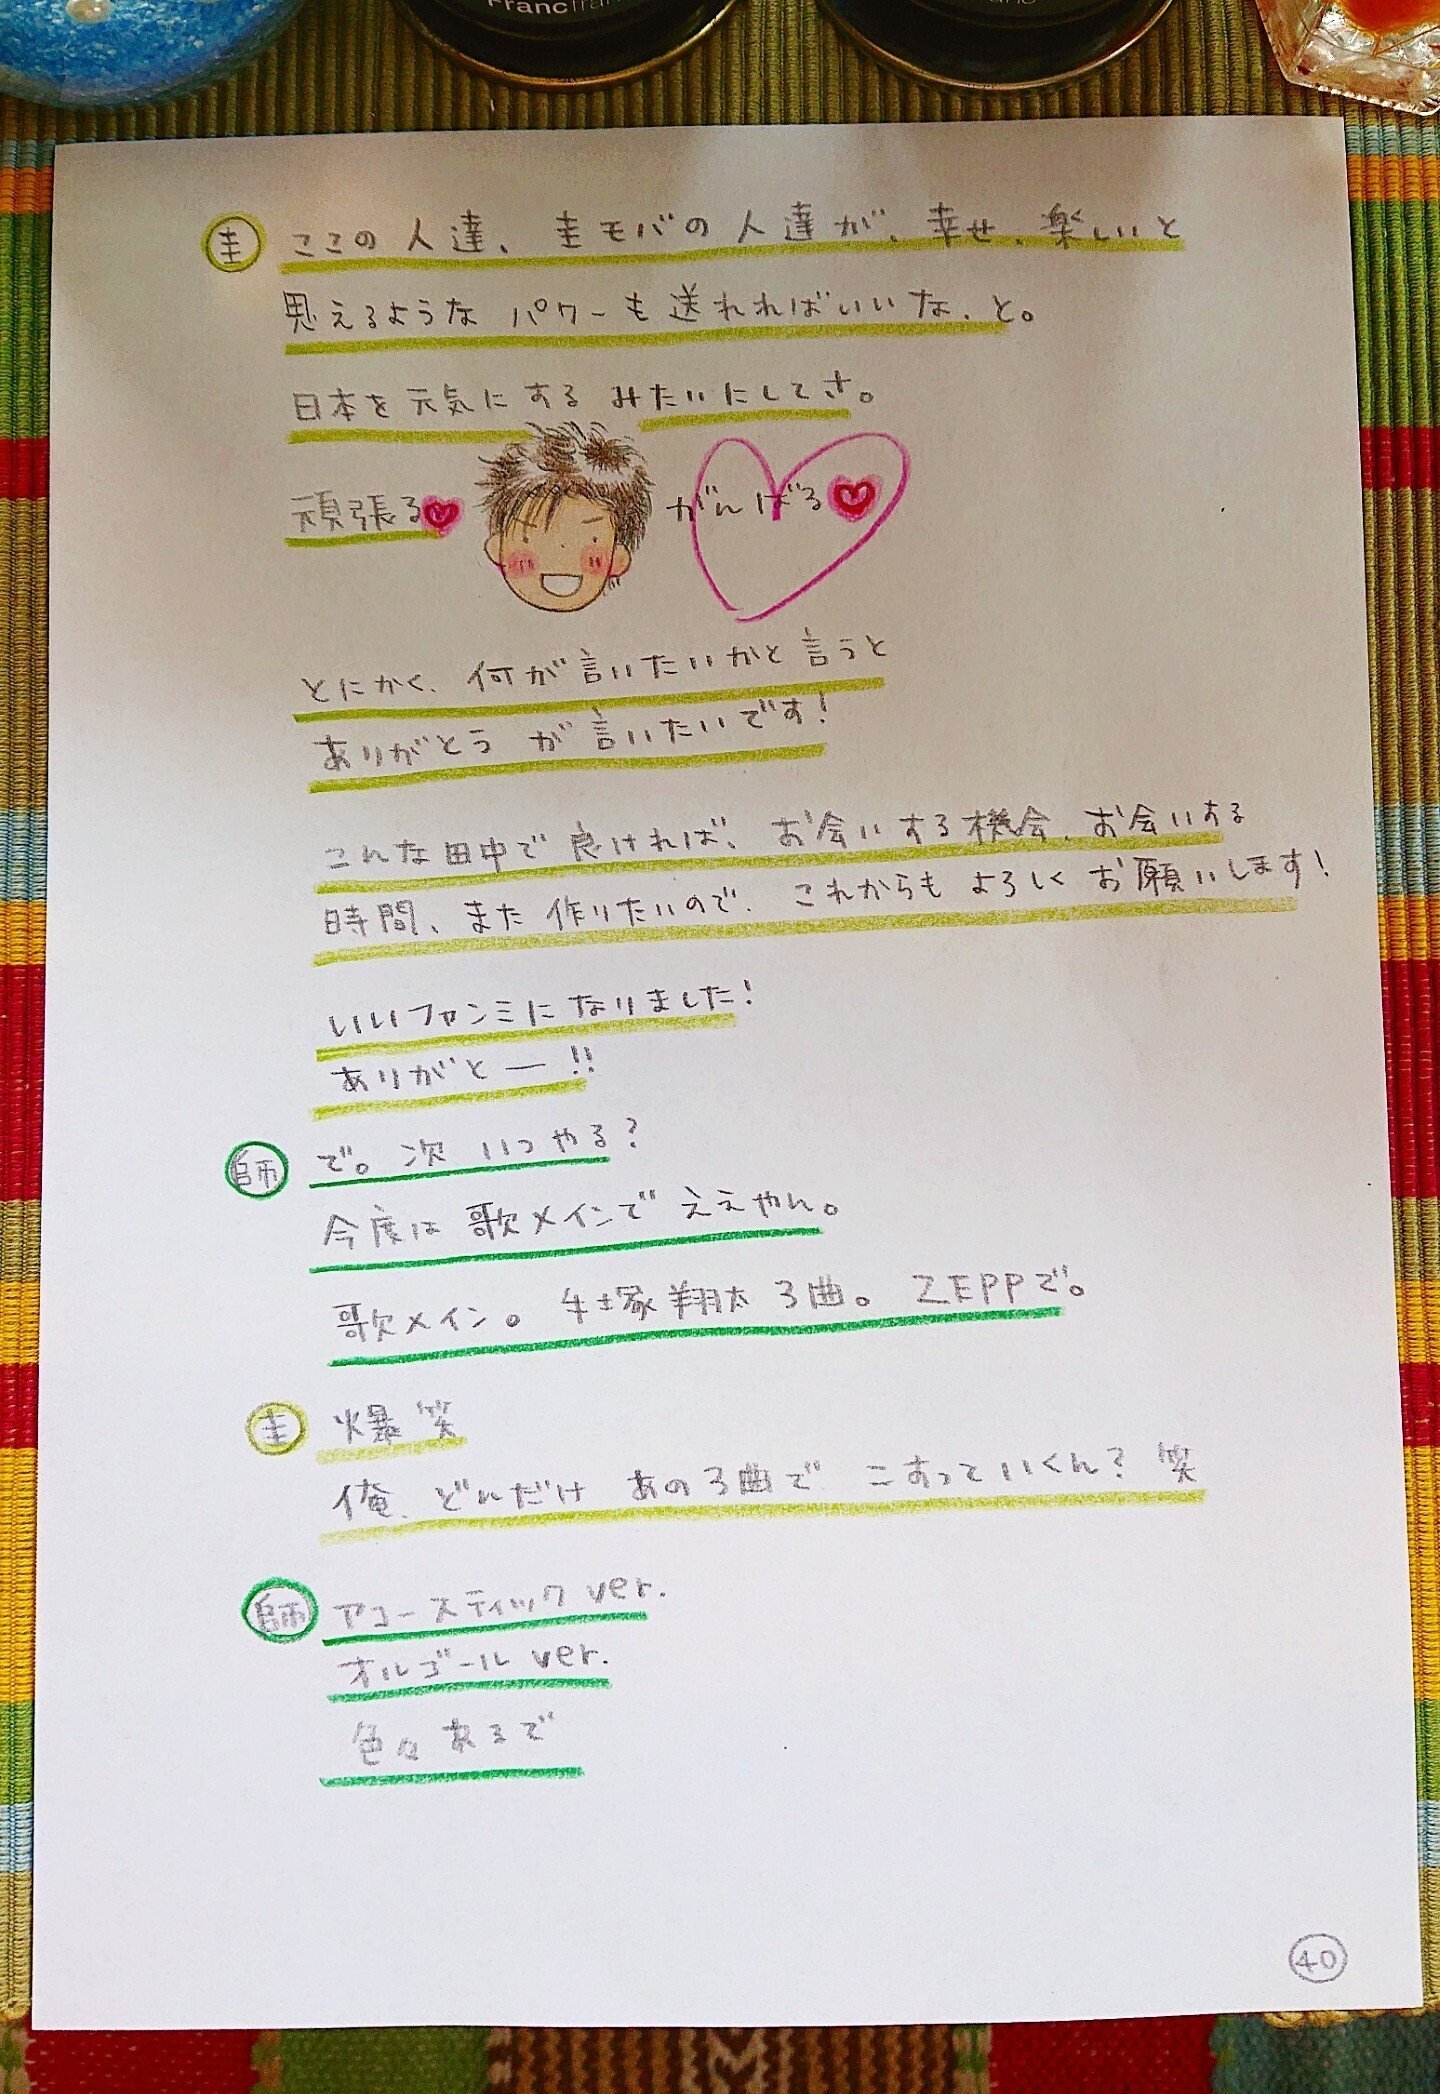 Francfran
圭 ここの人達、圭モバの人達が、幸せ、楽しいと
思えるような パワーも送れればいいな、と。
日本を元気にする みたいにしてさ。
頑張る がんばる
とにかく、何が言いたいかと言うと
ありがとう が言いたいです!
こんな田中で良ければ、お会いする機会、お会いする
時間、また作りたいので、これからも よろしくお願いします!
いいファンミになりました!
ありがとー!!
師 で。次 いつやる?
今度は 歌メインで ええやん。
歌メイン。牛塚翔太 3曲。ZEPPで。
圭 爆笑
俺、どんだけ あの3曲で こすっていくん? 笑
師 アコースティック ver.
オルゴール ver.
色々あるで
40